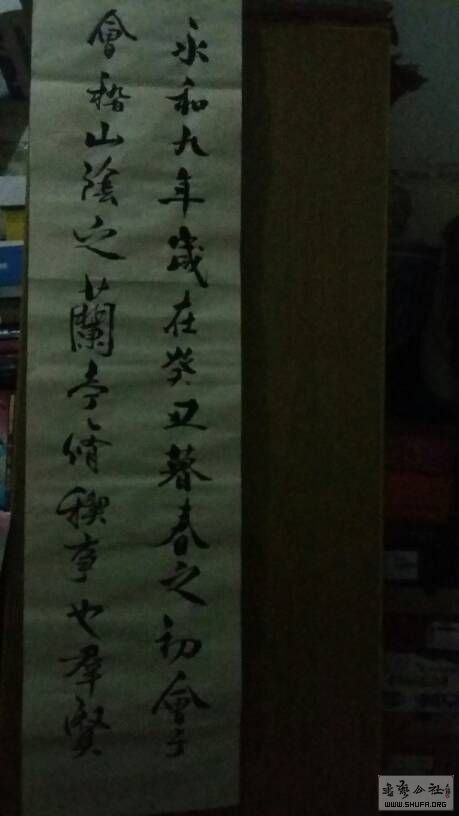 永和九年歲在癸丑暮春之初會于
會稽山陰之蘭亭脩稧事也羣賢
書藝公社
WWW.SHUFA.ORG